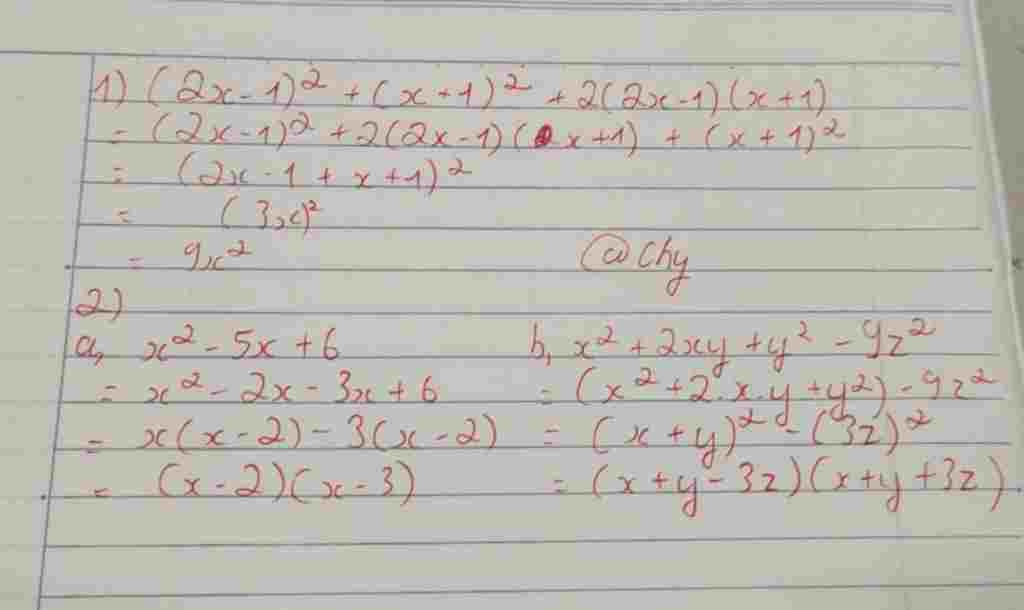 1) (2x-1)² + (x+1)² + 2(2x-1)(x+1)
= (2x-1)² + 2(2x-1)(x+1) + (x+1)²
= (2x-1+x+1)²
= (3x)²
= 9x² @Chy
2)
a, x² - 5x + 6 b, x² + 2xy + y² - 9z²
= x² - 2x - 3x + 6 = (x² + 2.x.y + y²) - 9z²
= x(x-2) - 3(x-2) = (x+y)² - (3z)²
= (x-2)(x-3) = (x+y-3z)(x+y+3z).